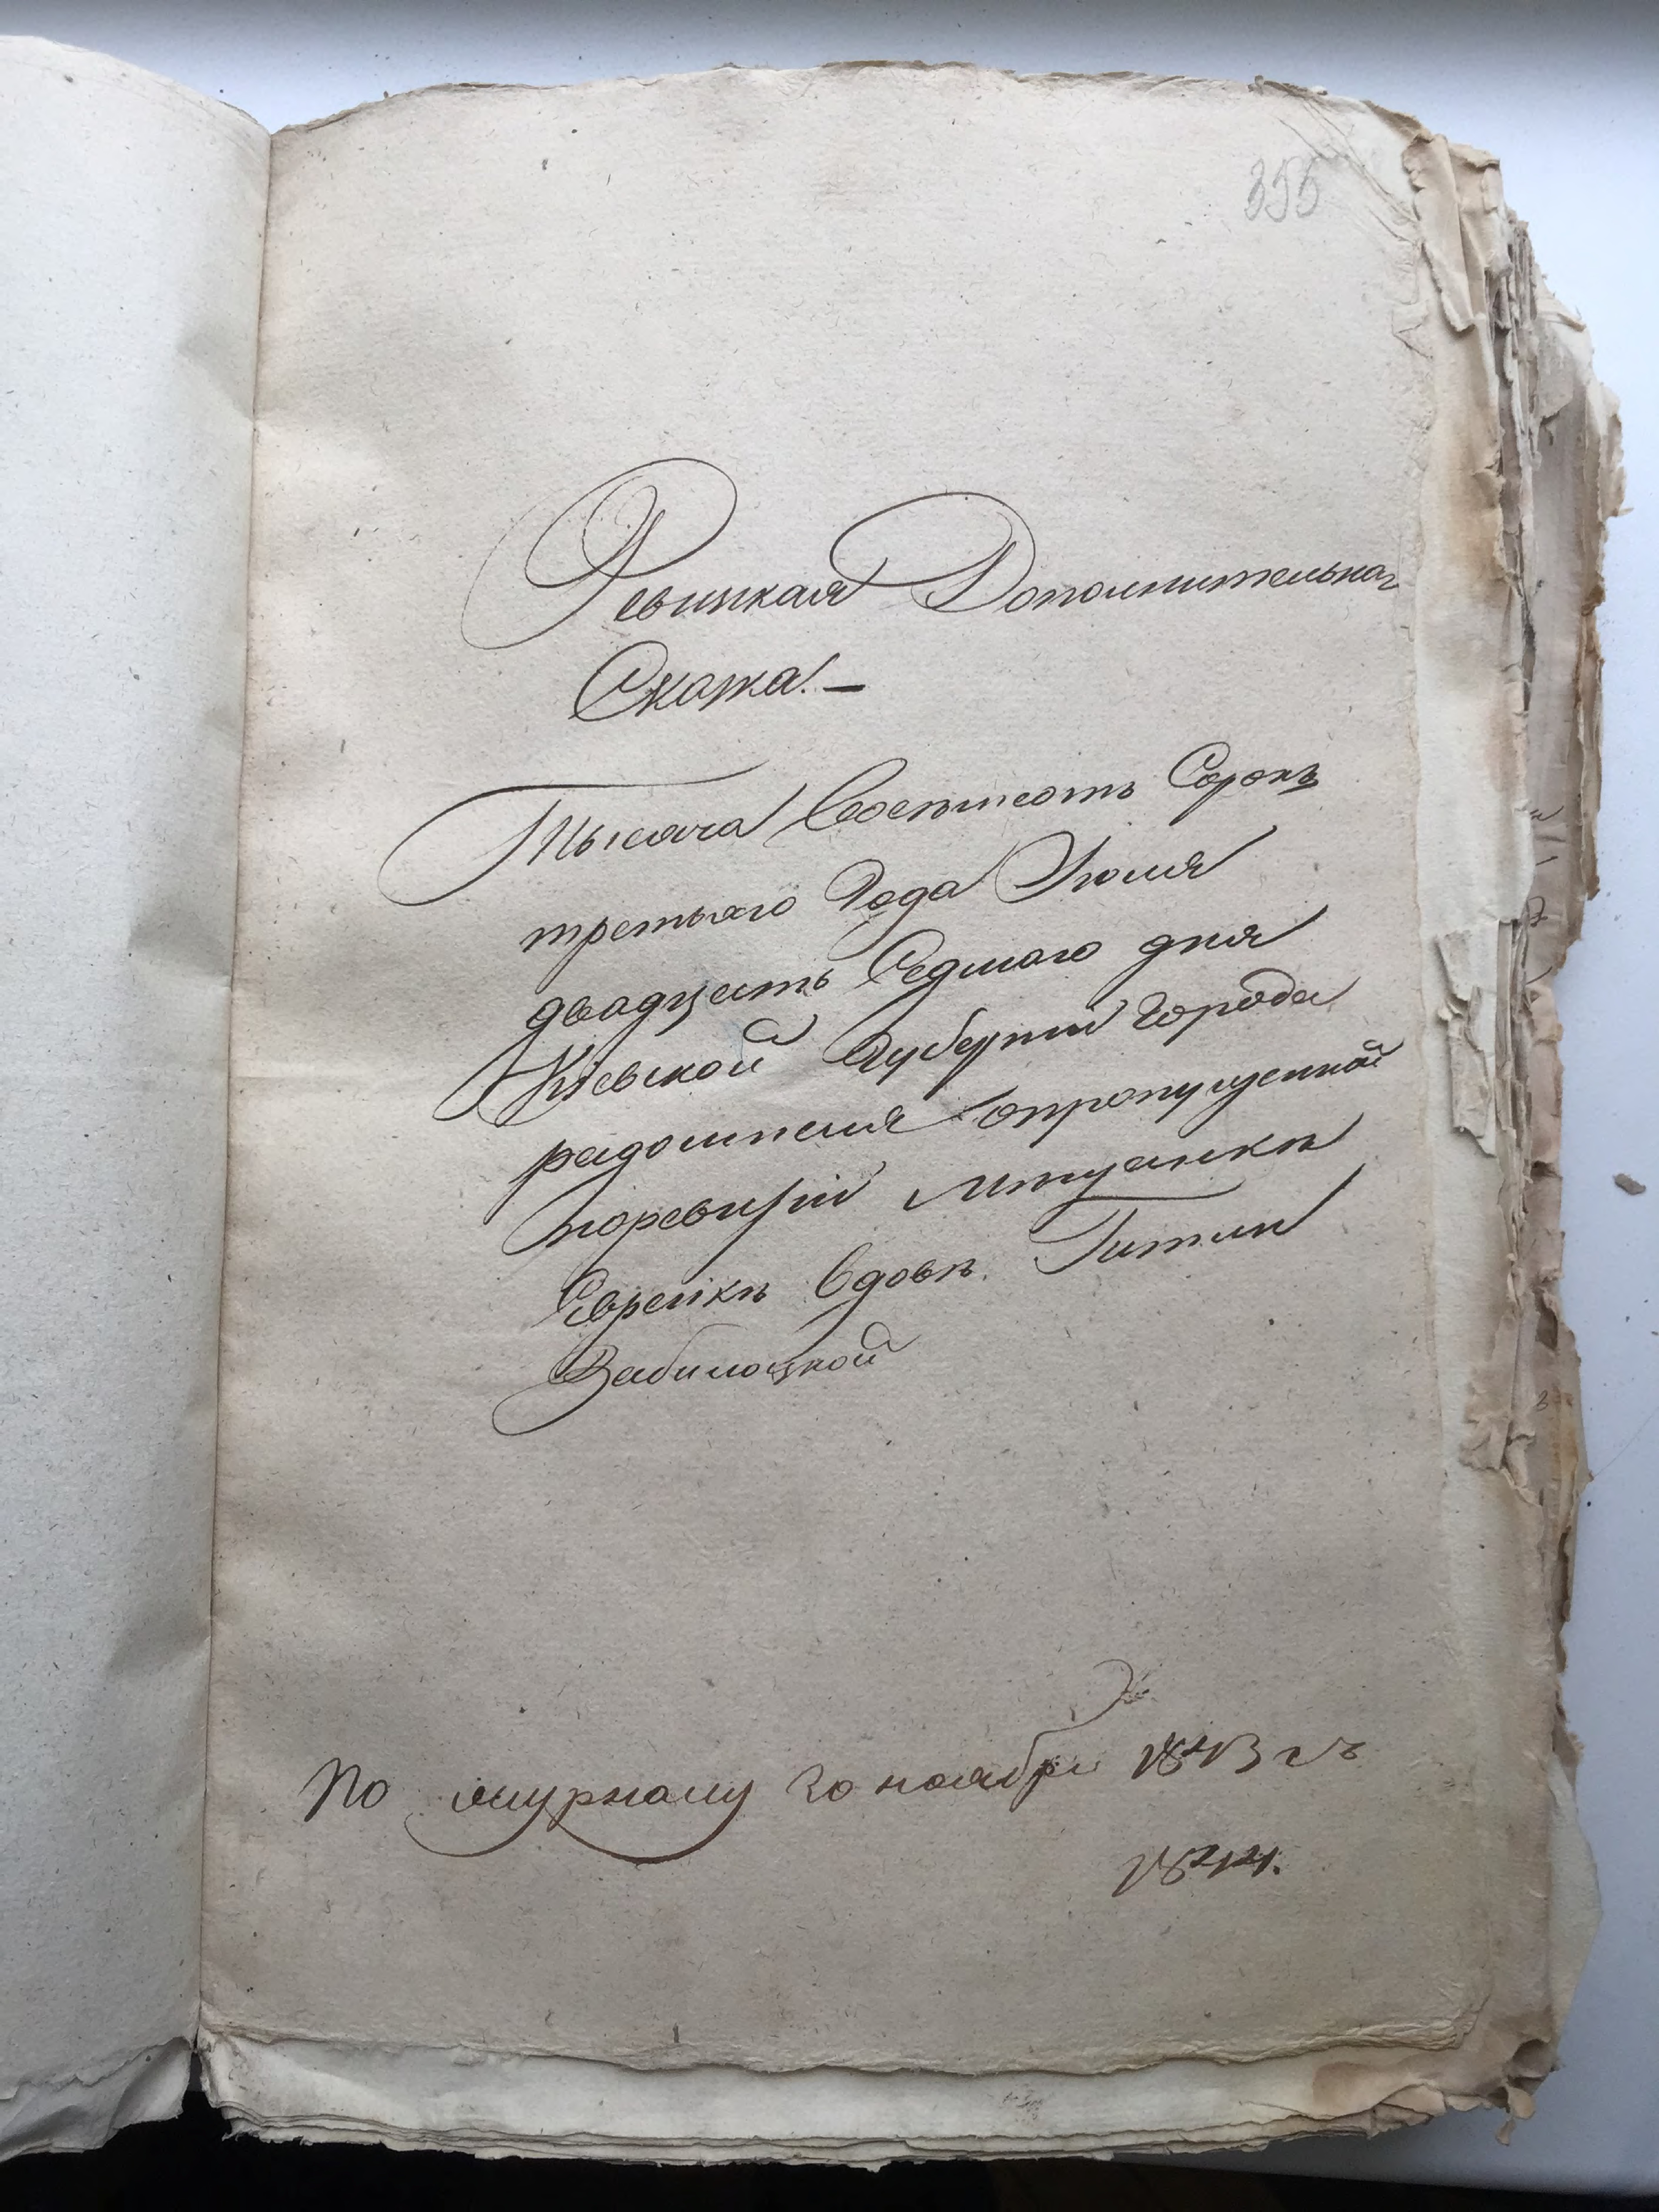 355
Ревизкая Дополнительная
Скаска. —
Тысяча Восемсотъ Сорокъ
третьяго Года Июля
двадцать Седмаго дня
Кіевской Губерніи города
радомысля опропущенной
поревизіи мещанкѣ
Еврейкѣ вдовѣ Гитли
Забилоцкой
По журналу 20 ноября 1843 гъ